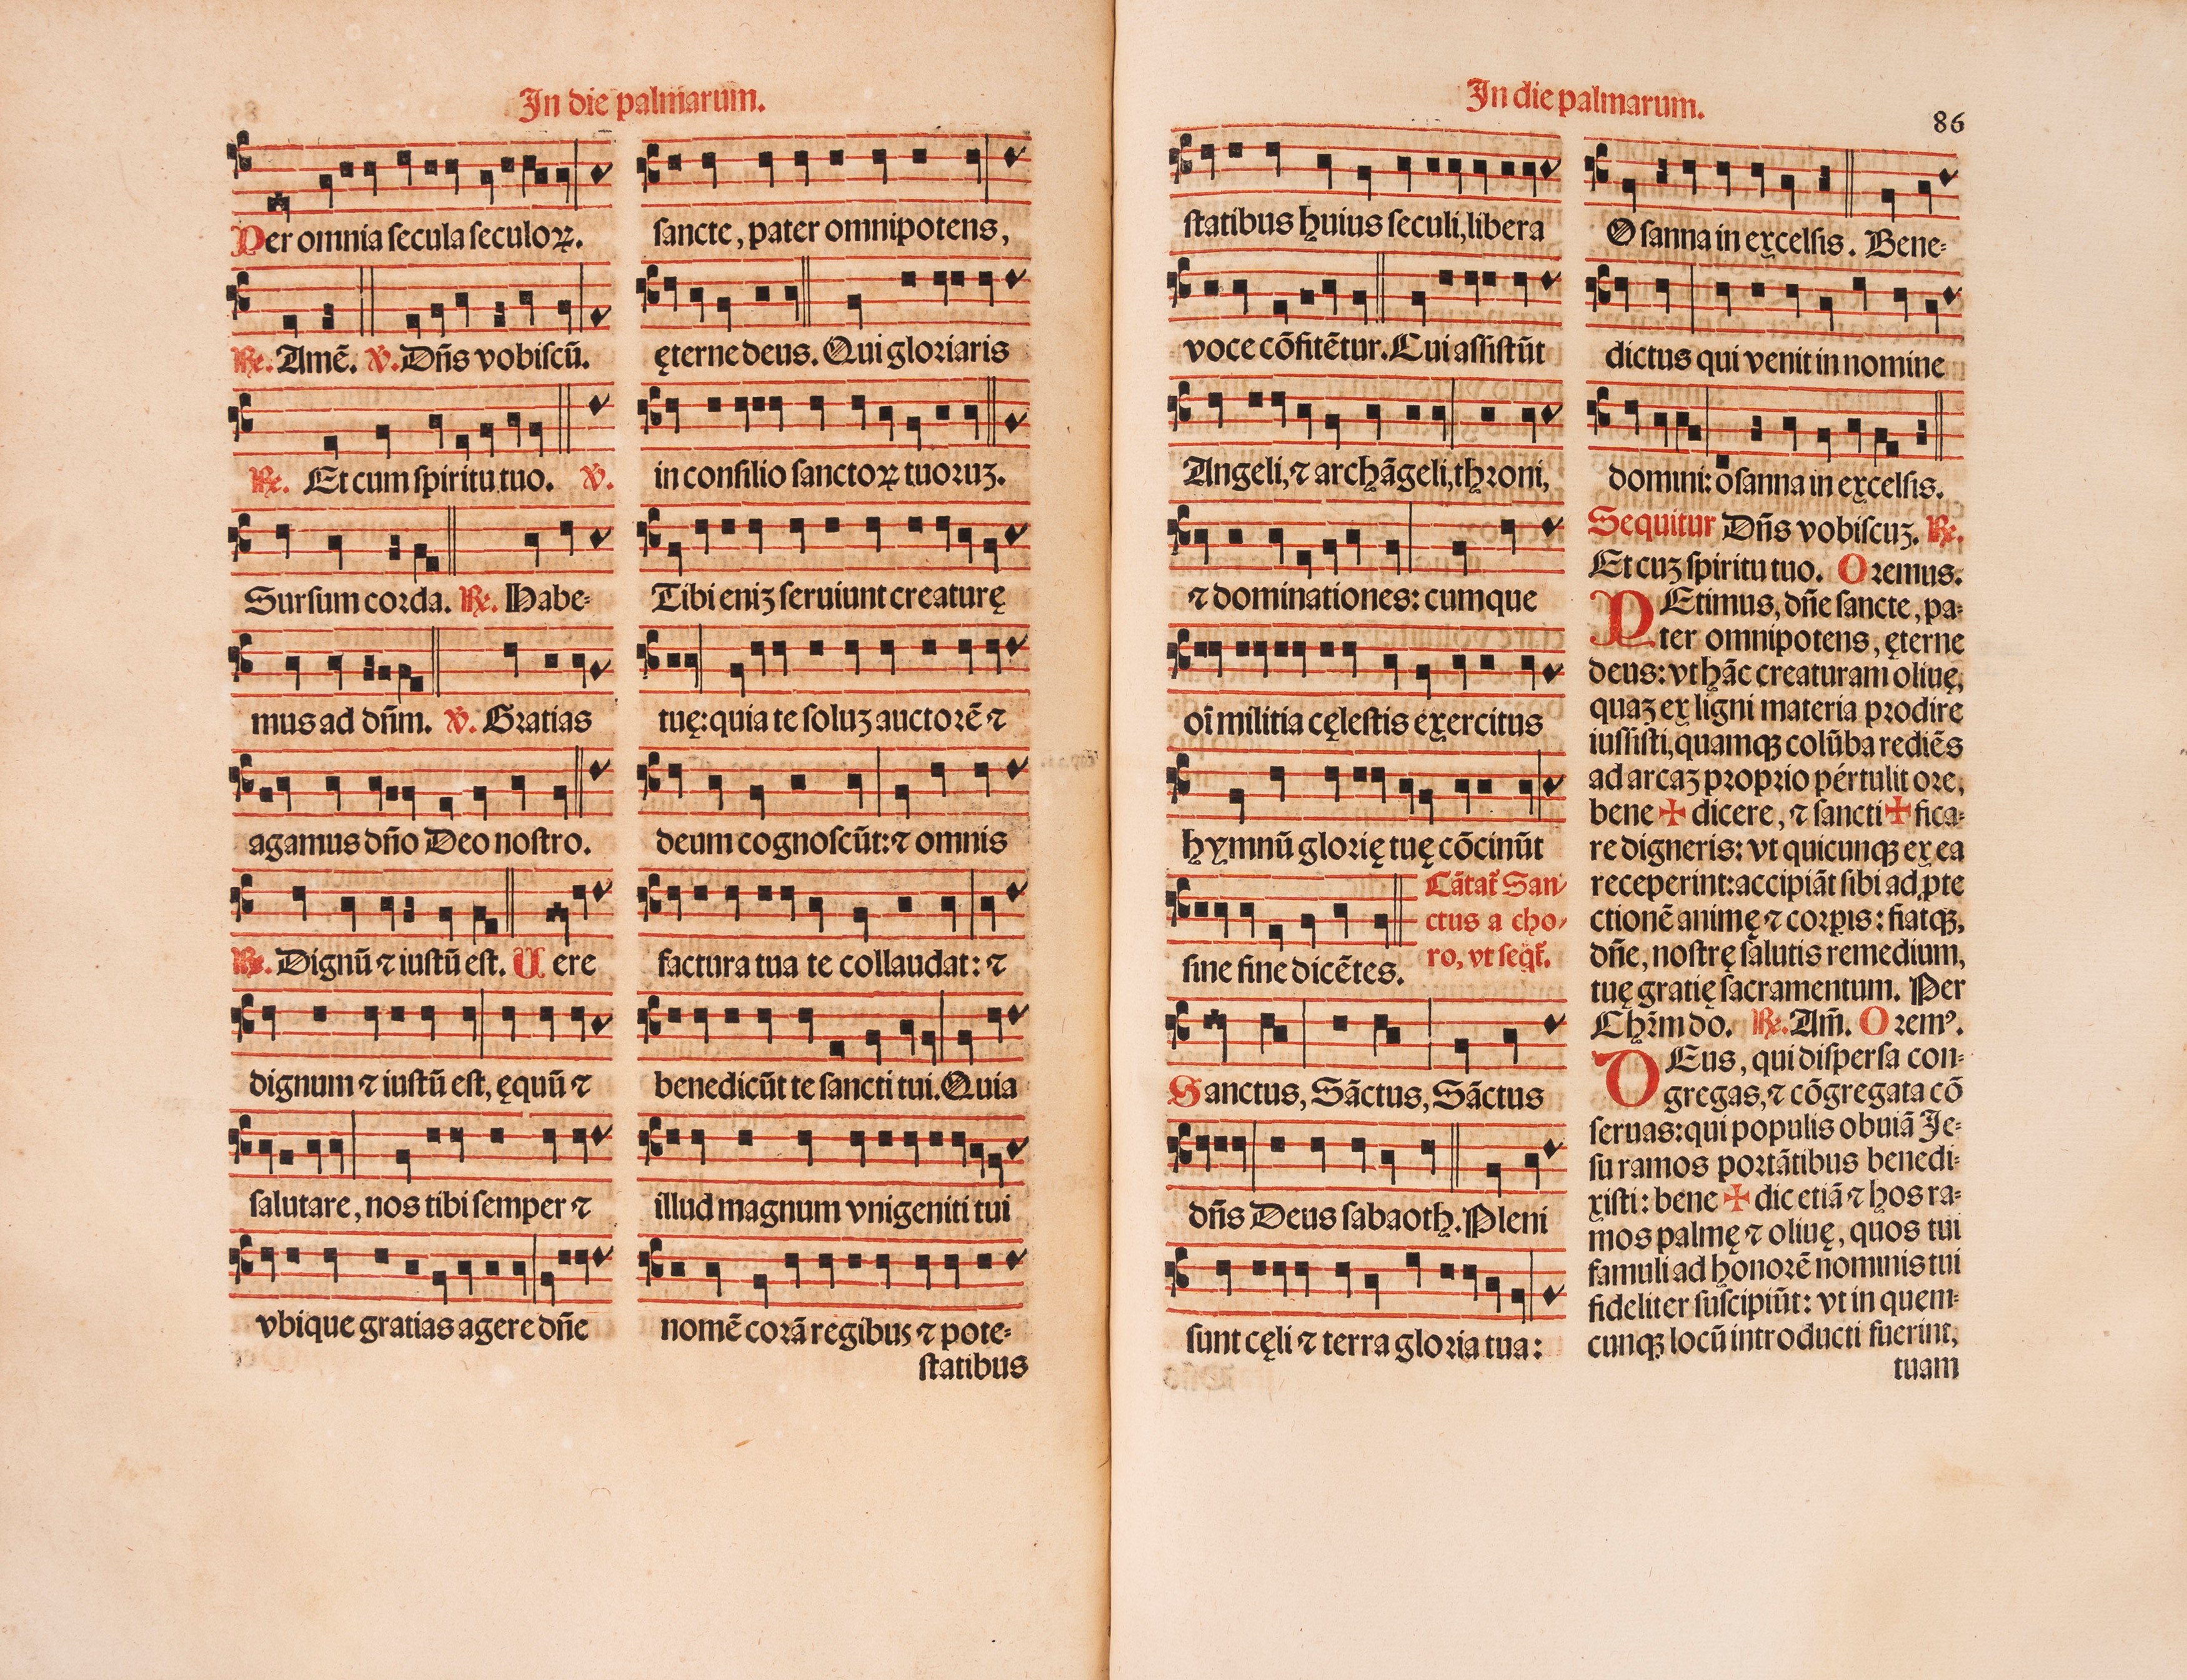 In die palmarum.
Per omnia secula seculoꝝ.
℟. Amē. ℣. Dn̄s vobiscū.
℟. Et cum spiritu tuo. ℣.
Sursum corda. ℟. Habe⸗
mus ad dn̄m. ℣. Gratias
agamus dn̄o Deo nostro.
℟. Dignū ⁊ iustū est. Uere
dignum ⁊ iustū est, ęquū ⁊
salutare, nos tibi semper ⁊
vbique gratias agere dn̄e
sancte, pater omnipotens,
ęterne deus. Qui gloriaris
in consilio sanctoꝝ tuoruꝫ.
Tibi eniꝫ seruiunt creaturę
tuę: quia te soluꝫ auctorē ⁊
deum cognoscūt: ⁊ omnis
factura tua te collaudat: ⁊
benedicūt te sancti tui. Quia
illud magnum vnigeniti tui
nomē corā regibus ⁊ pote⸗
statibus
In die palmarum.
86
statibus huius seculi, libera
voce cōfitētur. Cui assistūt
Angeli, ⁊ archāgeli, throni,
⁊ dominationes: cumque
oī militia cęlestis exercitus
hymnū glorię tuę cōcinūt
sine fine dicētes.
Cātat̄ San⸗
ctus a cho⸗
ro, vt seqt̄.
Sanctus, Sāctus, Sāctus
dn̄s Deus sabaoth. Pleni
sunt cęli ⁊ terra gloria tua:
Osanna in excelsis. Bene⸗
dictus qui venit in nomine
domini: osanna in excelsis.
Sequitur Dn̄s vobiscuꝫ. ℟.
Et cuꝫ spiritu tuo. Oremus.
PEtimus, dn̄e sancte, pa⸗
ter omnipotens, ęterne
deus: vt hāc creaturam oliuę,
quaꝫ ex ligni materia prodire
iussisti, quamqꝫ colūba rediēs
ad arcaꝫ proprio pértulit ore,
bene ✠ dicere, ⁊ sancti ✠ fica⸗
re digneris: vt quicunqꝫ ex ea
receperint: accipiāt sibi ad ꝓte
ctionē animę ⁊ corꝑis: fiatqꝫ,
dn̄e, nostrę salutis remedium,
tuę gratię sacramentum. Per
Chr̄m do. ℟. Am̄. Oremꝰ.
DEus, qui dispersa con⸗
gregas, ⁊ cōgregata cō
seruas: qui populis obuiā Je⸗
su ramos portātibus benedi⸗
xisti: bene ✠ dic etiā ⁊ hos ra⸗
mos palmę ⁊ oliuę, quos tui
famuli ad honorē nominis tui
fideliter suscipiūt: vt in quem⸗
cunqꝫ locū introducti fuerint,
tuam